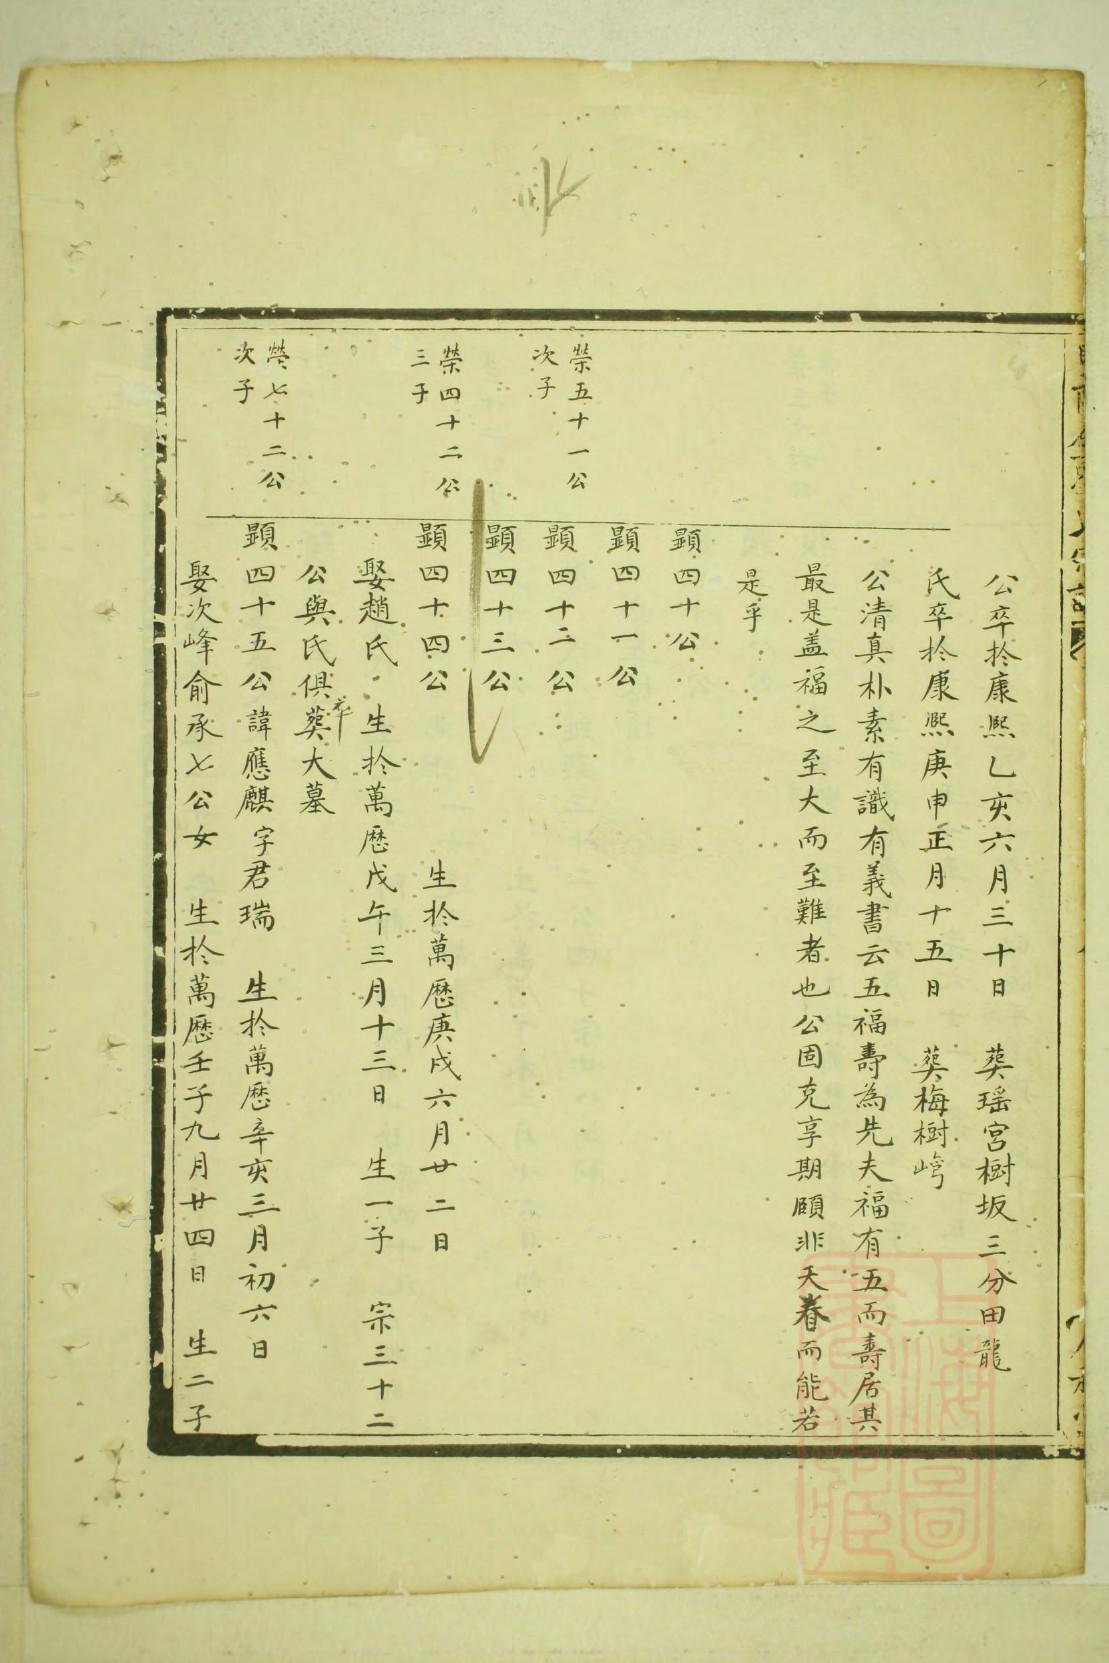 公卒扵康熙乙亥六月三十日　葬瑶宮樹坂三分田龍
氏卒扵康熙庚申正月十五日　葬梅樹
公清真朴素有識有義書云五福壽為先夫福有五而壽居其
最是盖福之至大而至難者也公固克享期頤非天眷而能若
是乎
顕四十公
顕四十一公
榮五十一公
次子
顕四十二公
顕四十三公
榮四十二公
三子
顕四十四公　生扵萬歷庚戌六月廿二日
娶趙氏　生扵萬歷戊午三月十三日　生一子　宗三十二
公與氏俱卒葬大墓
榮七十二公
次子
顕四十五公諱應麒字君瑞　生扵萬歷辛亥三月初六日
娶次峰俞承七公女　生扵萬歷壬子九月廿四日　生二子
上海圖